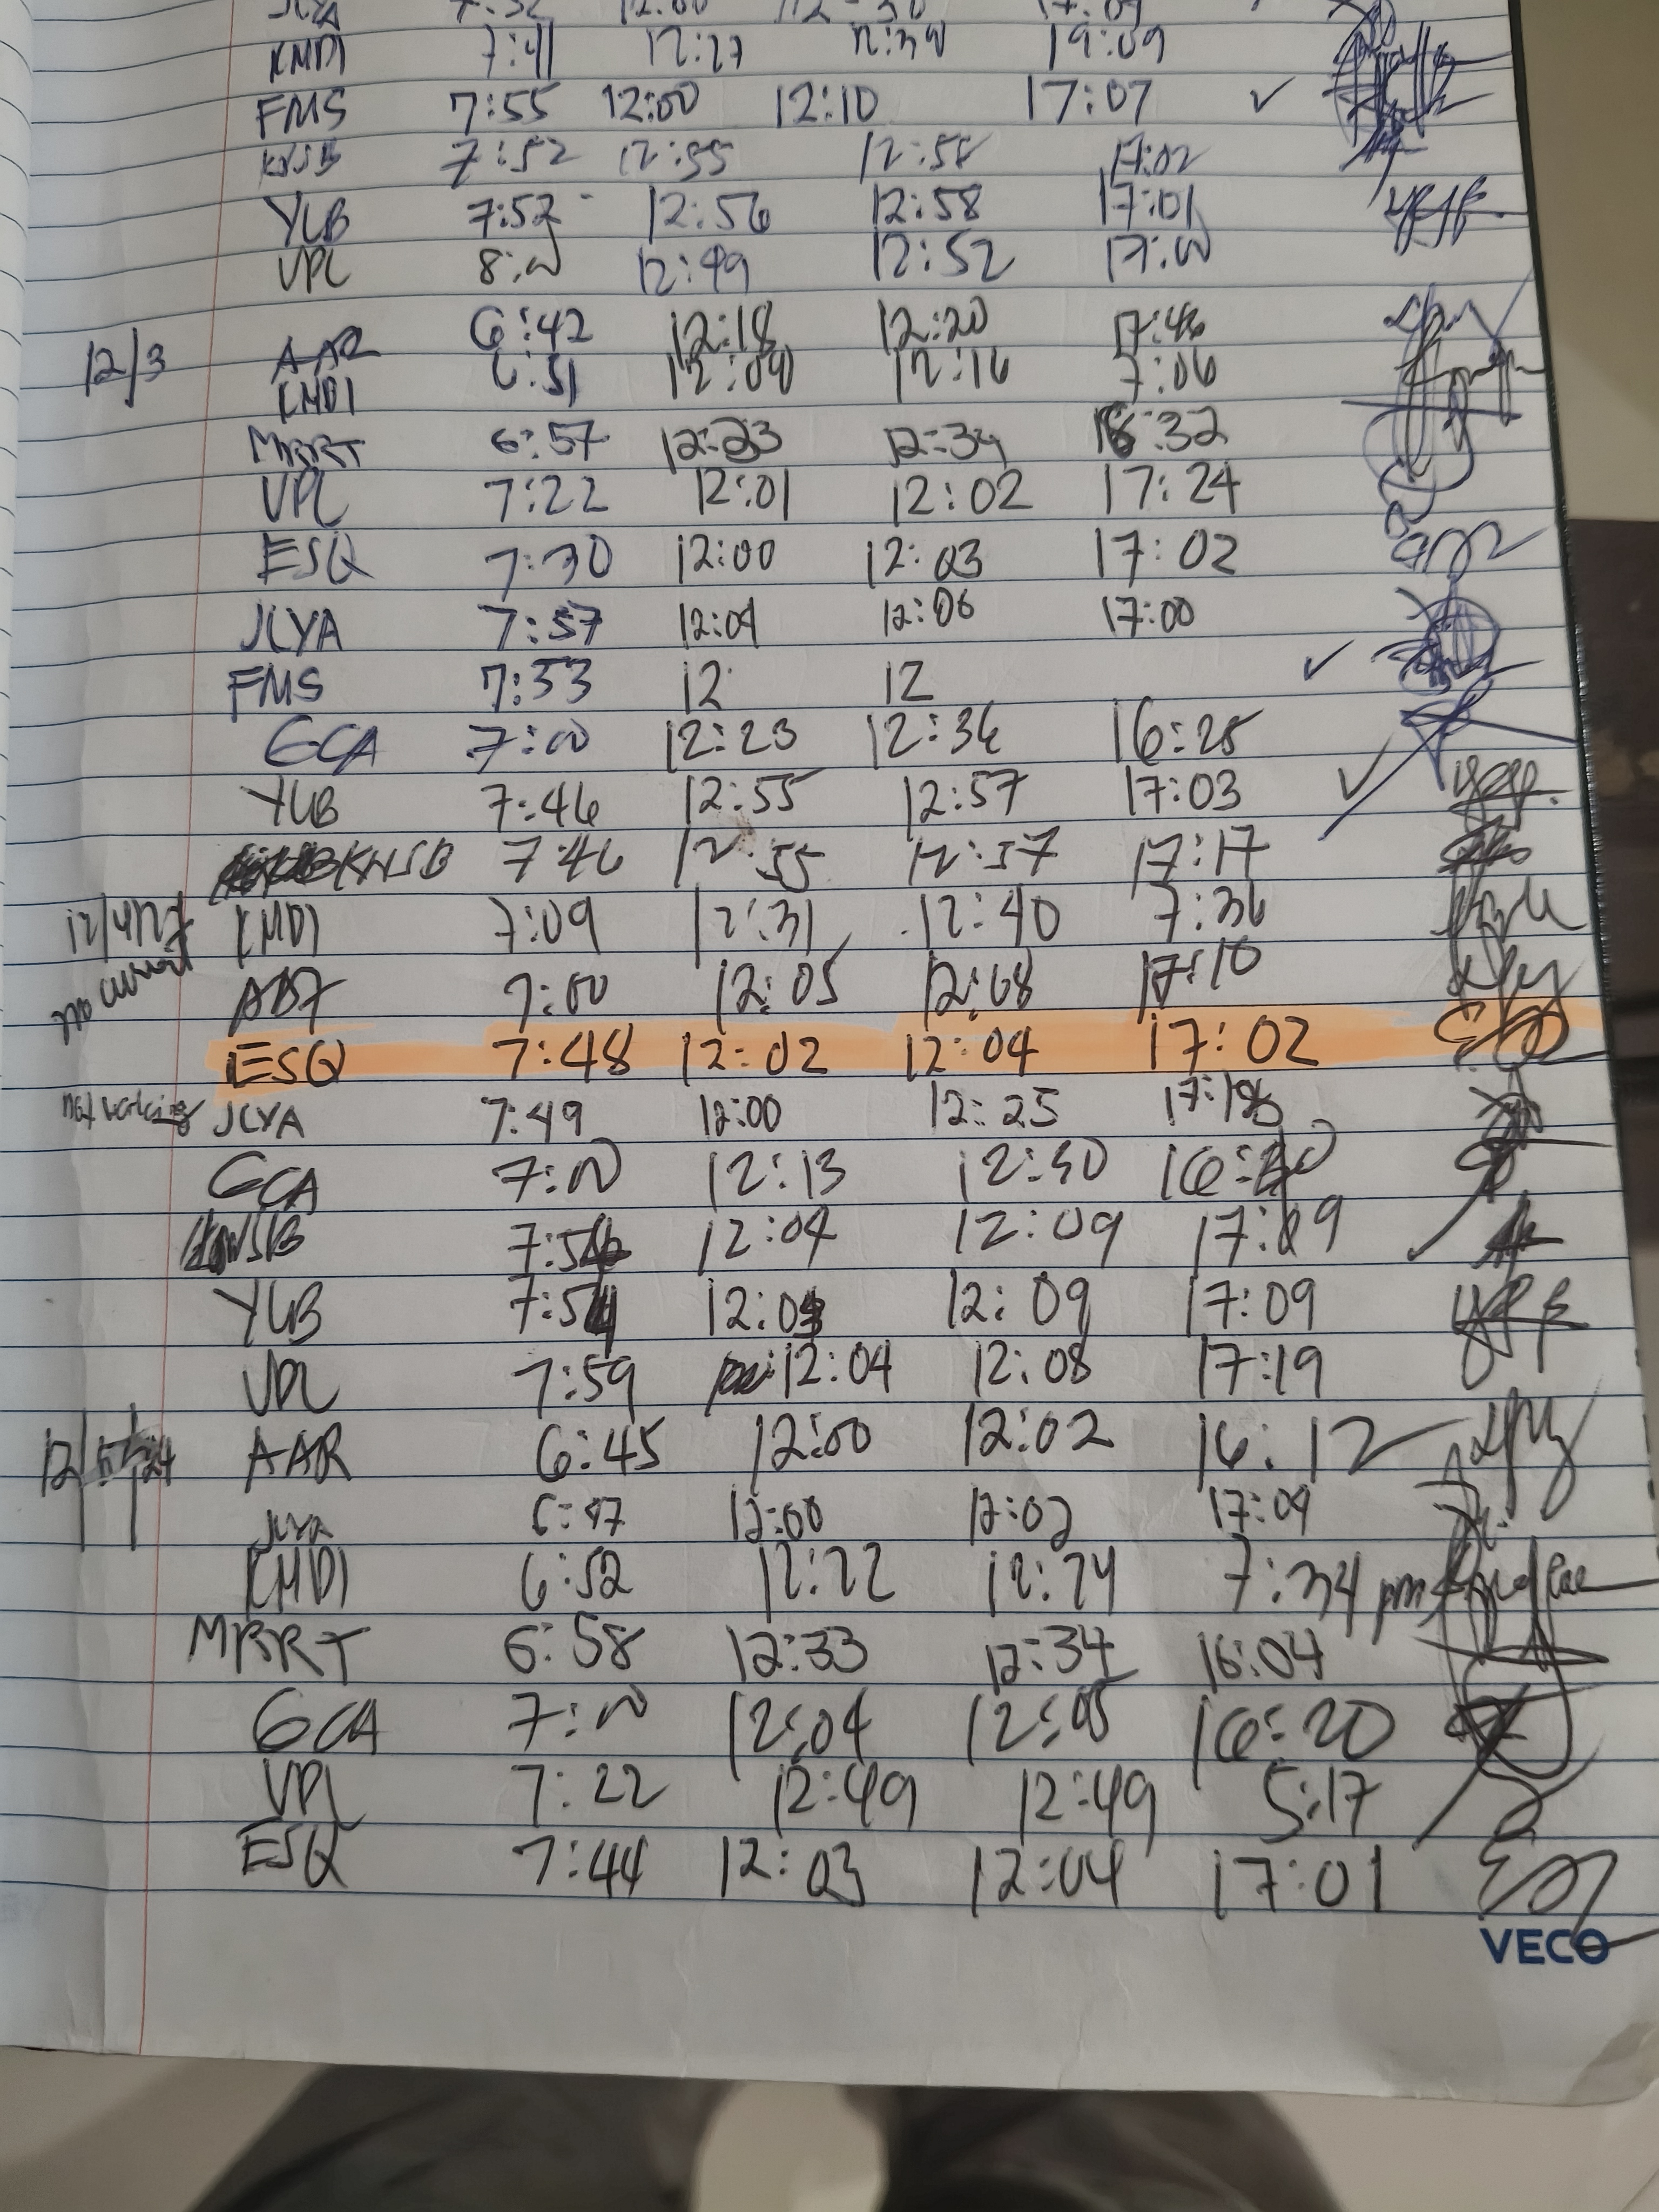 JLYA 7:52 12:00 12:30 17:09
KMDI 7:41 12:27 12:34 19:09
FMS 7:55 12:00 12:10 17:07 ✓
7:52 12:55 12:58 17:02
YLB 7:52 12:56 12:58 17:01
VPL 8:00 12:49 12:52 17:00
12/3 AAR 6:42 12:18 12:20 17:46
KMDI 6:51 12:09 12:16 7:06
MRRT 6:57 12:23 12:34 16:32
VPL 7:22 12:01 12:02 17:24
ESQ 7:30 12:00 12:03 17:02
JLYA 7:57 12:04 12:06 17:00
FMS 7:53 12 12 ✓
GCA 7:00 12:23 12:36 16:25
YLB 7:46 12:55 12:57 17:03 ✓
KWSB 7:46 12:55 12:57 17:17
KMDI 7:09 12:31 12:40 7:36
no current
7:00 12:05 12:08 17:10
ESQ 7:48 12:02 12:04 17:02
not working JLYA 7:49 12:00 12:25
GCA 7:00 12:13 12:30
12:04 12:09 17:09
YLB 7:54 12:09 17:09
VPL 7:59 12:04 12:08 17:19
12/5/24 AAR 6:45 12:00 12:02 16:12
JLYA 6:47 12:00 12:02 17:09
KMDI 6:52 12:22 12:24 7:34 pm
MRRT 6:58 12:33 12:34 16:04
GCA 7:00 12:04 12:05 16:20
VPL 7:22 12:49 12:49 5:17
ESQ 7:44 12:03 12:04 17:01
VECO